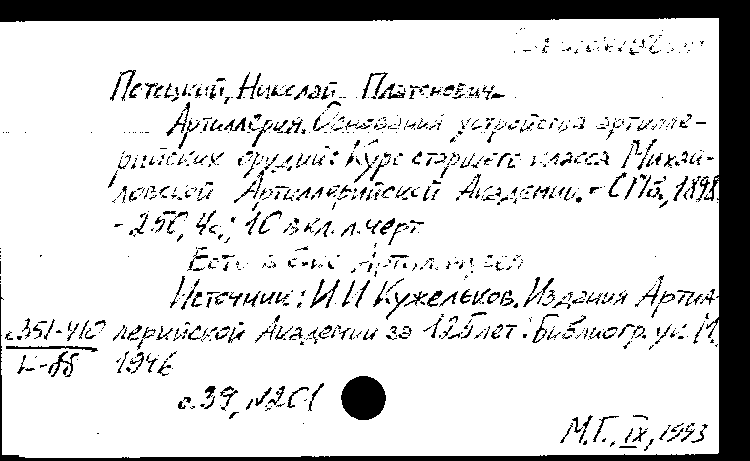 Потоцкий, Николай Платонович
Артиллерия. Основания устройства артилле-
рийских орудий: Курс старшего класса Михай-
ловской Артиллерийской Академии. - СПб., 1898.
- 250, 4с.; 10 вкл. л. черт
Есть в б-ке Артил. музея
Источник: И И Кужельков. Издания Артил
с.351-410 лерийской Академии за 125 лет: Библиогр. ук. М,
К-88 1946
с.39, №201
М.Г., IX, 1993